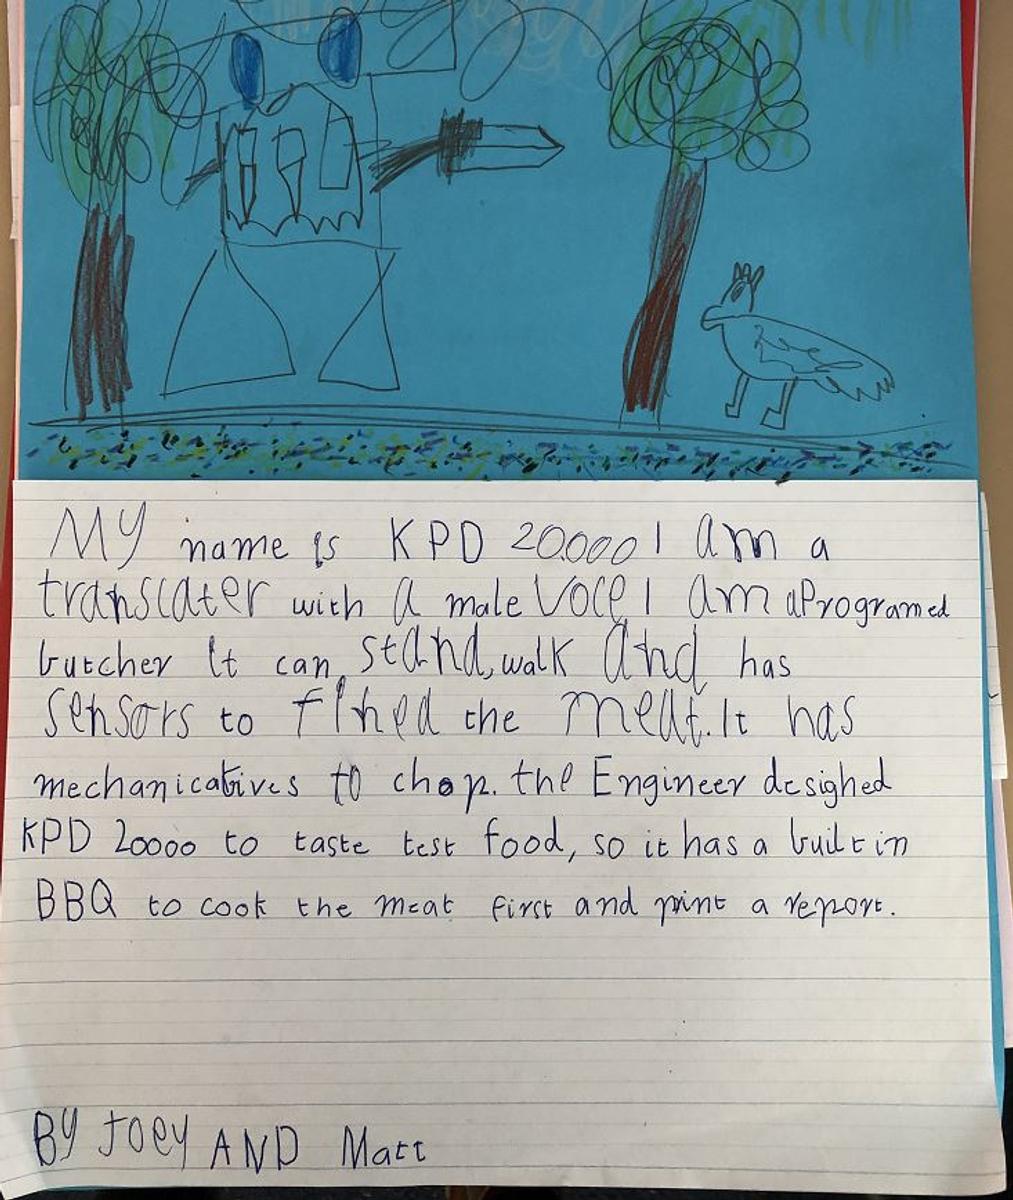 My name is KPD 20000 I am a
translater with a male voce I am aProgramed
butcher It can stand, walk and has
sensors to fined the meat. It has
mechanicatives to chop. the Engineer desighed
KPD 20000 to taste test food, so it has a built in
BBQ to cook the meat first and print a report.
BY JOEY AND Matt